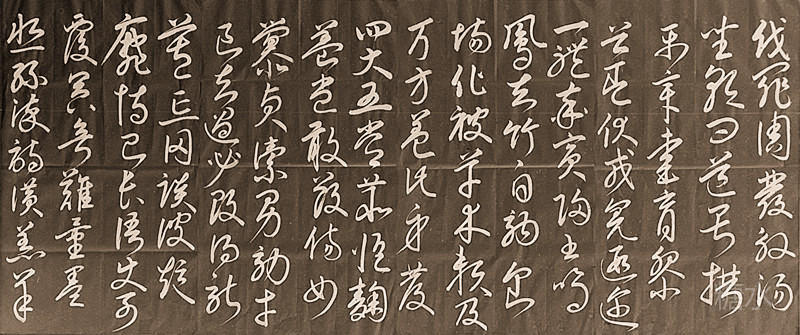 伐罪周發殷湯
坐朝問道垂拱
平章愛育黎
首臣伏戎羌遐邇
一體率賓歸王鳴
鳳在竹白駒食
場化被草木賴及
万方蓋此身髮
四大五常恭惟鞠
養豈敢毀傷女
慕貞絜男效才
良知過必改得能
莫忘罔談彼短
靡恃己長信使可
覆器欲難量墨
悲絲染詩讚羔羊